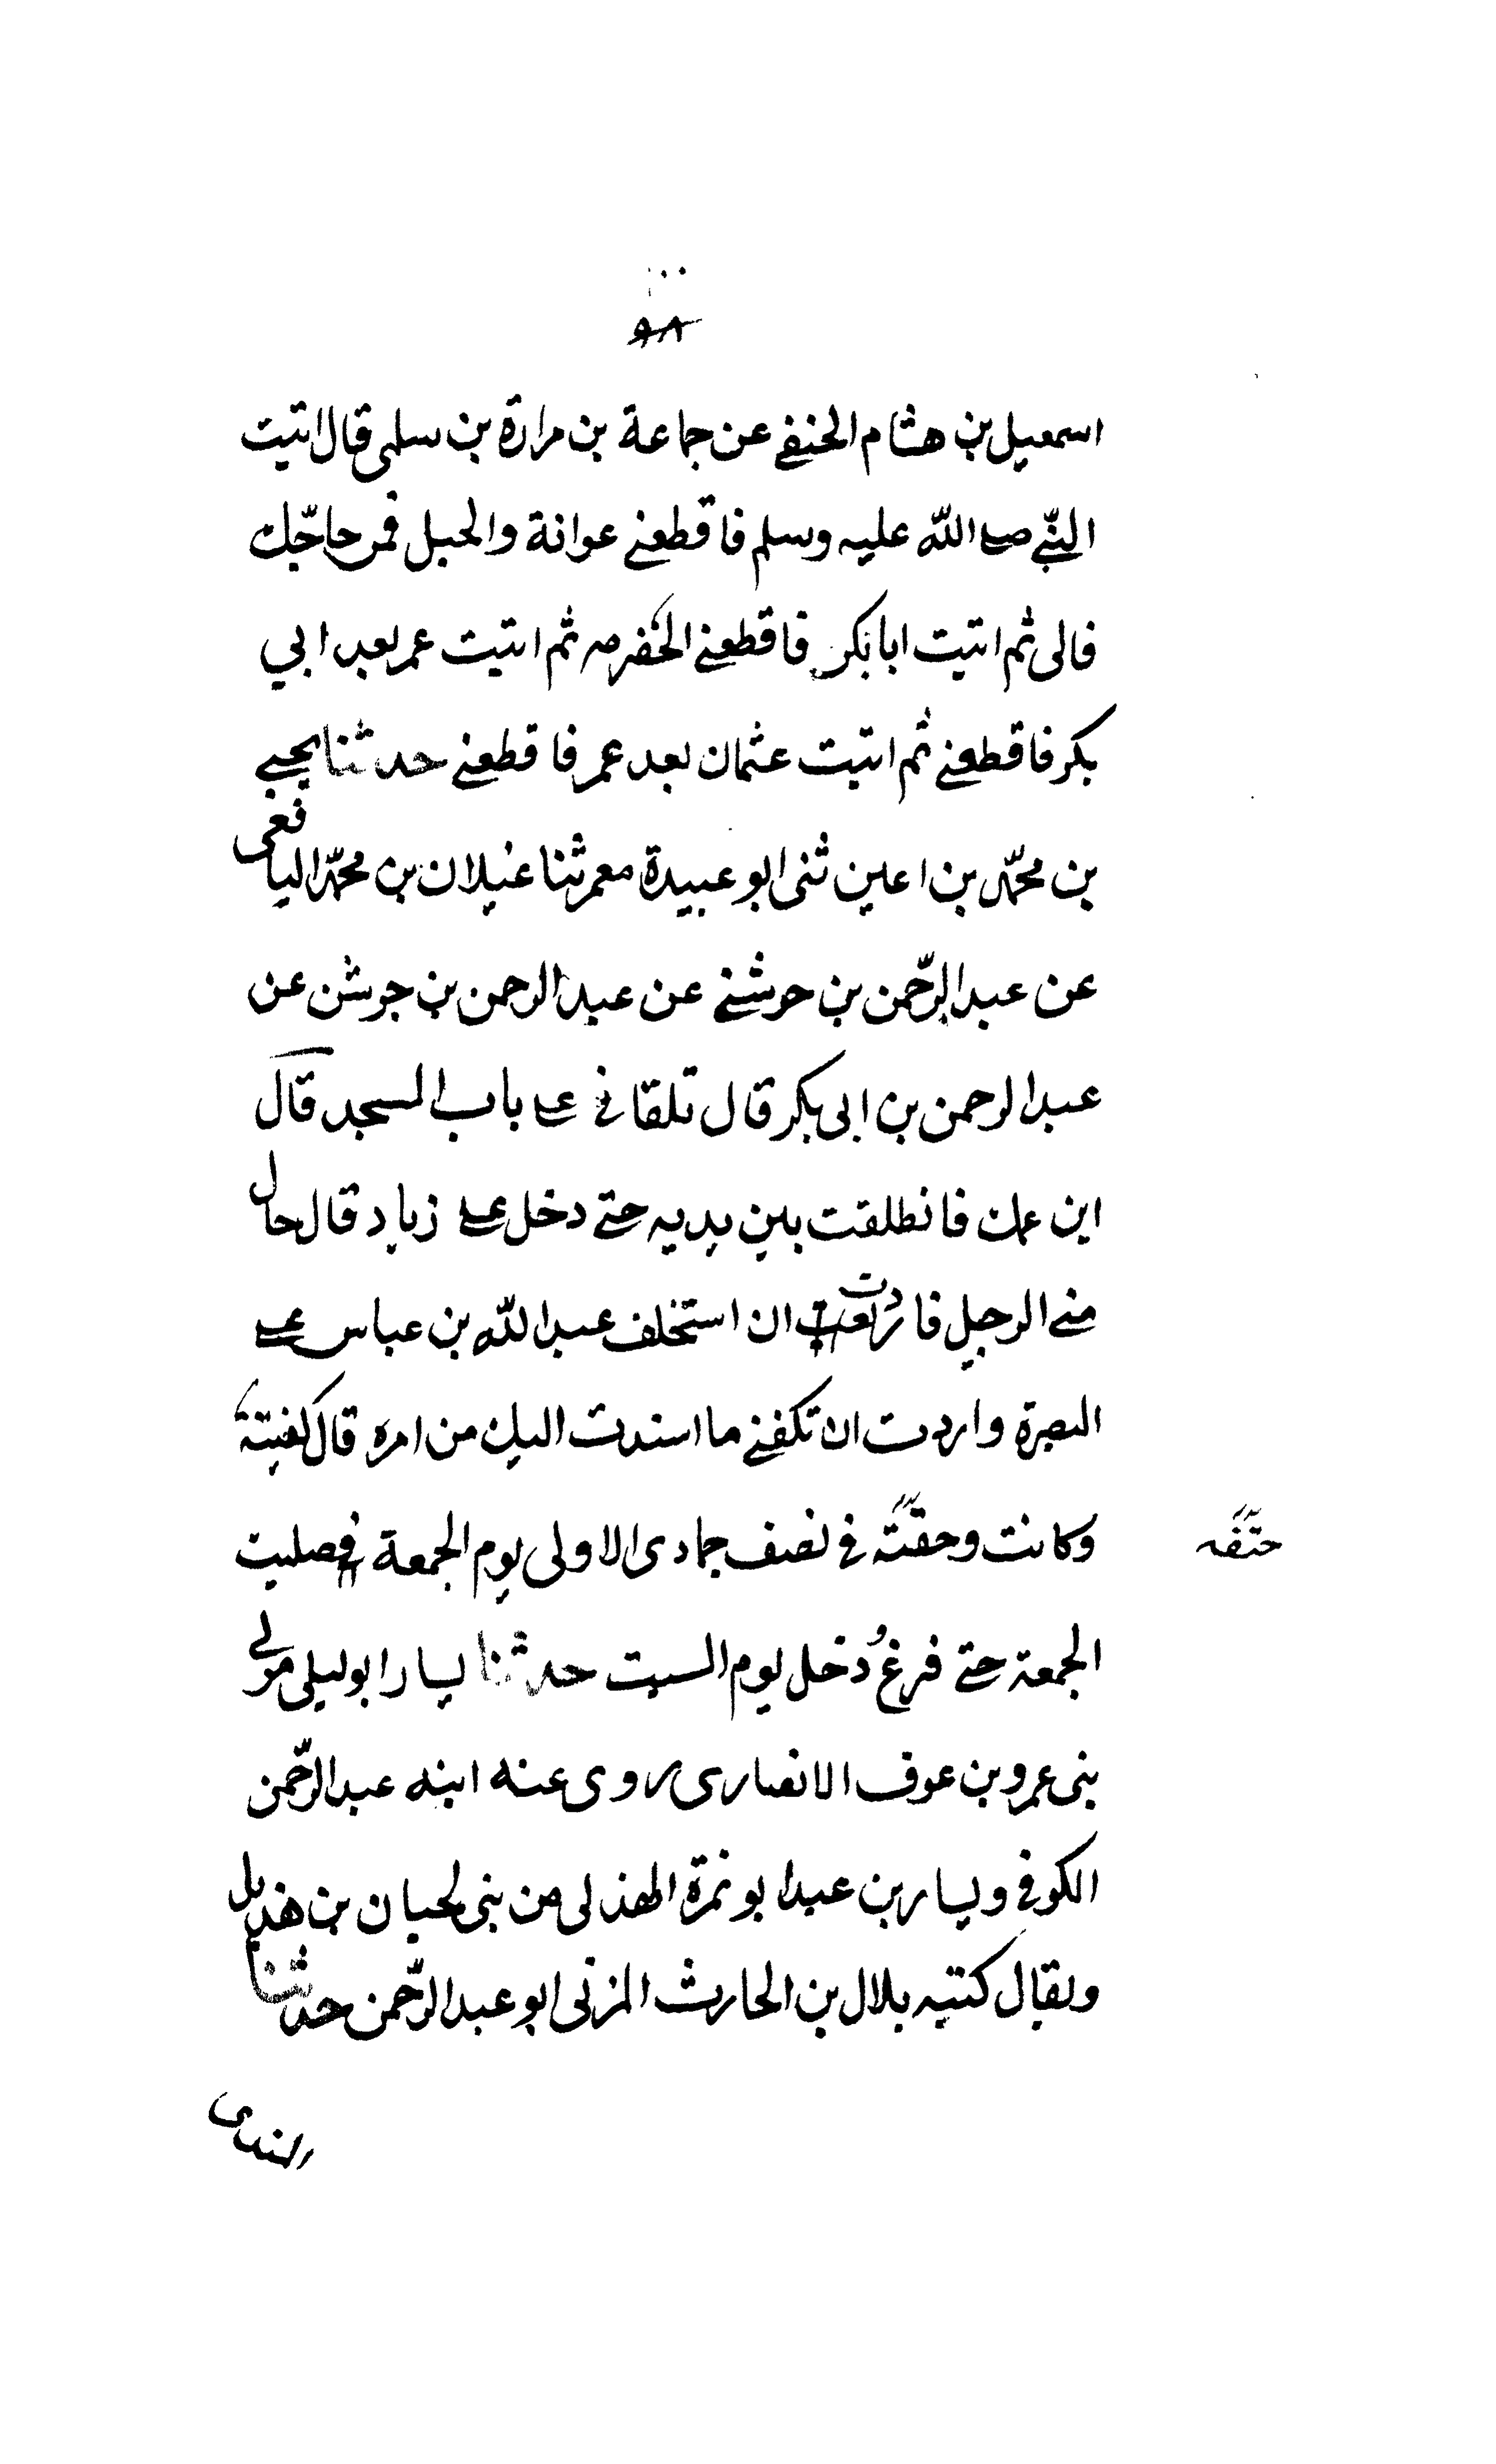 ٩٨
اسمعيل بن هشام الحنفي عن جماعة بن مرارة بن سلمى قال اتيت
النبي صلى الله عليه وسلم فاقطعني عوانة والحبل فمن حاجّك
فالى ثم اتيت ابا بكر فاقطعني الخضرمه ثم اتيت عمر بعد ابي
بكر فاقطعني ثم اتيت عثمان بعد عمر فاقطعني حدثنا يحيى
بن محمّد بن اعين ثنى ابو عبيدة معمر ثنا غيلان بن محمّد اليافعى
عن عبد الرّحمن بن حوشني عن عبد الرحمن بن جوشن عن
عبد الرحمن بن ابى بكر قال تلقاني على باب المسجد قال
اين عمك فانطلقت بين يديه حتى دخل على زياد قال حال
منى الرجل فاردت ان استخلف عبد الله بن عباس على
البصرة واردت ان تكفني ما اسندت اليك من امره قال كفيتة
وكانت وحقته في نصف جمادى الاولى يوم الجمعة فصليت
حتفه
الجمعة حتى فرغ ودخل يوم السبت حدثنا يسار ابو ليلى مولى
بنى عمرو بن عوف الانصارى روى عنه ابنه عبد الرّحمن
الكوفي ويسار بن عبد ابو نمرة الهذلى من بنى لحيان بن هذيل
ويقال كنتيه بلال بن الحارث المزنى ابو عبد الرّحمن حدثنا